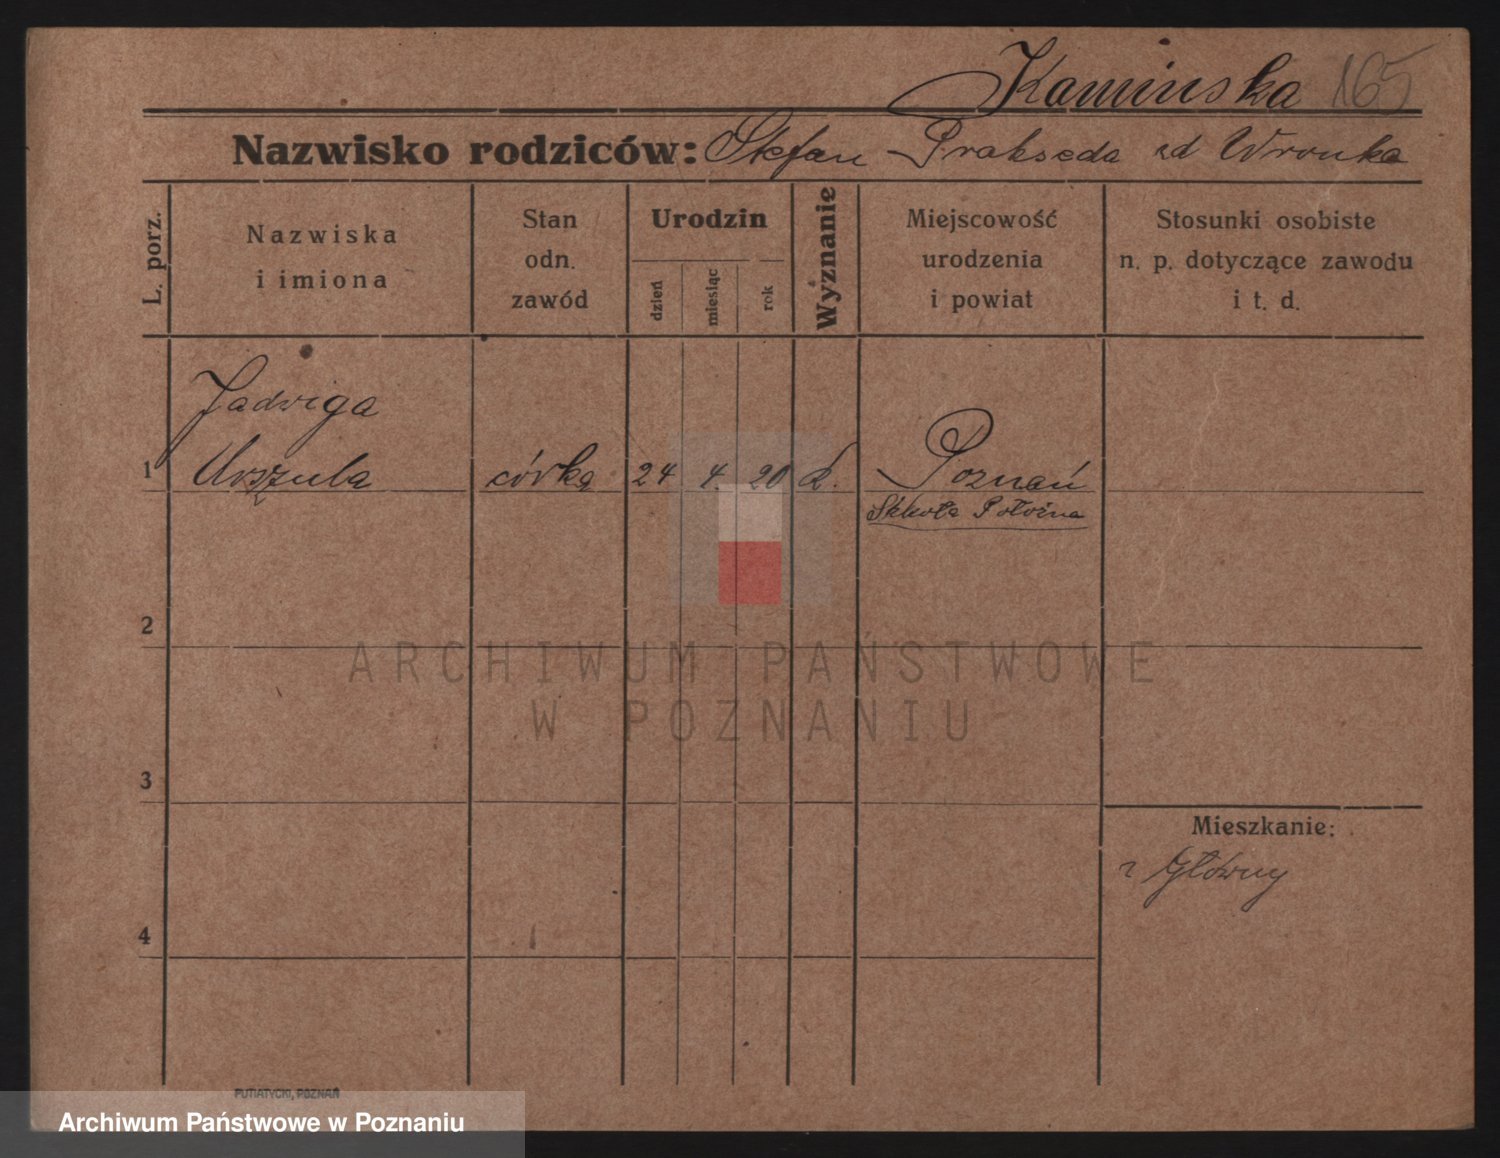 Kamińska 165
Nazwisko rodziców: Stefan Prakseda zd Wronka
L. porz.
Nazwiska
i imiona
Stan
odn.
zawód
Urodzin
dzień
miesiąc
rok
Wyznanie
Miejscowość
urodzenia
i powiat
Stosunki osobiste
n. p. dotyczące zawodu
i t. d.
Jadwiga
1 Urszula córka 24 4. 20 Poznań
2
ARCHIWUM PAŃSTWOWE
W POZNANIU
3
Mieszkanie:
Główny
4
PUTIATYCKI, POZNAŃ
Archiwum Państwowe w Poznaniu